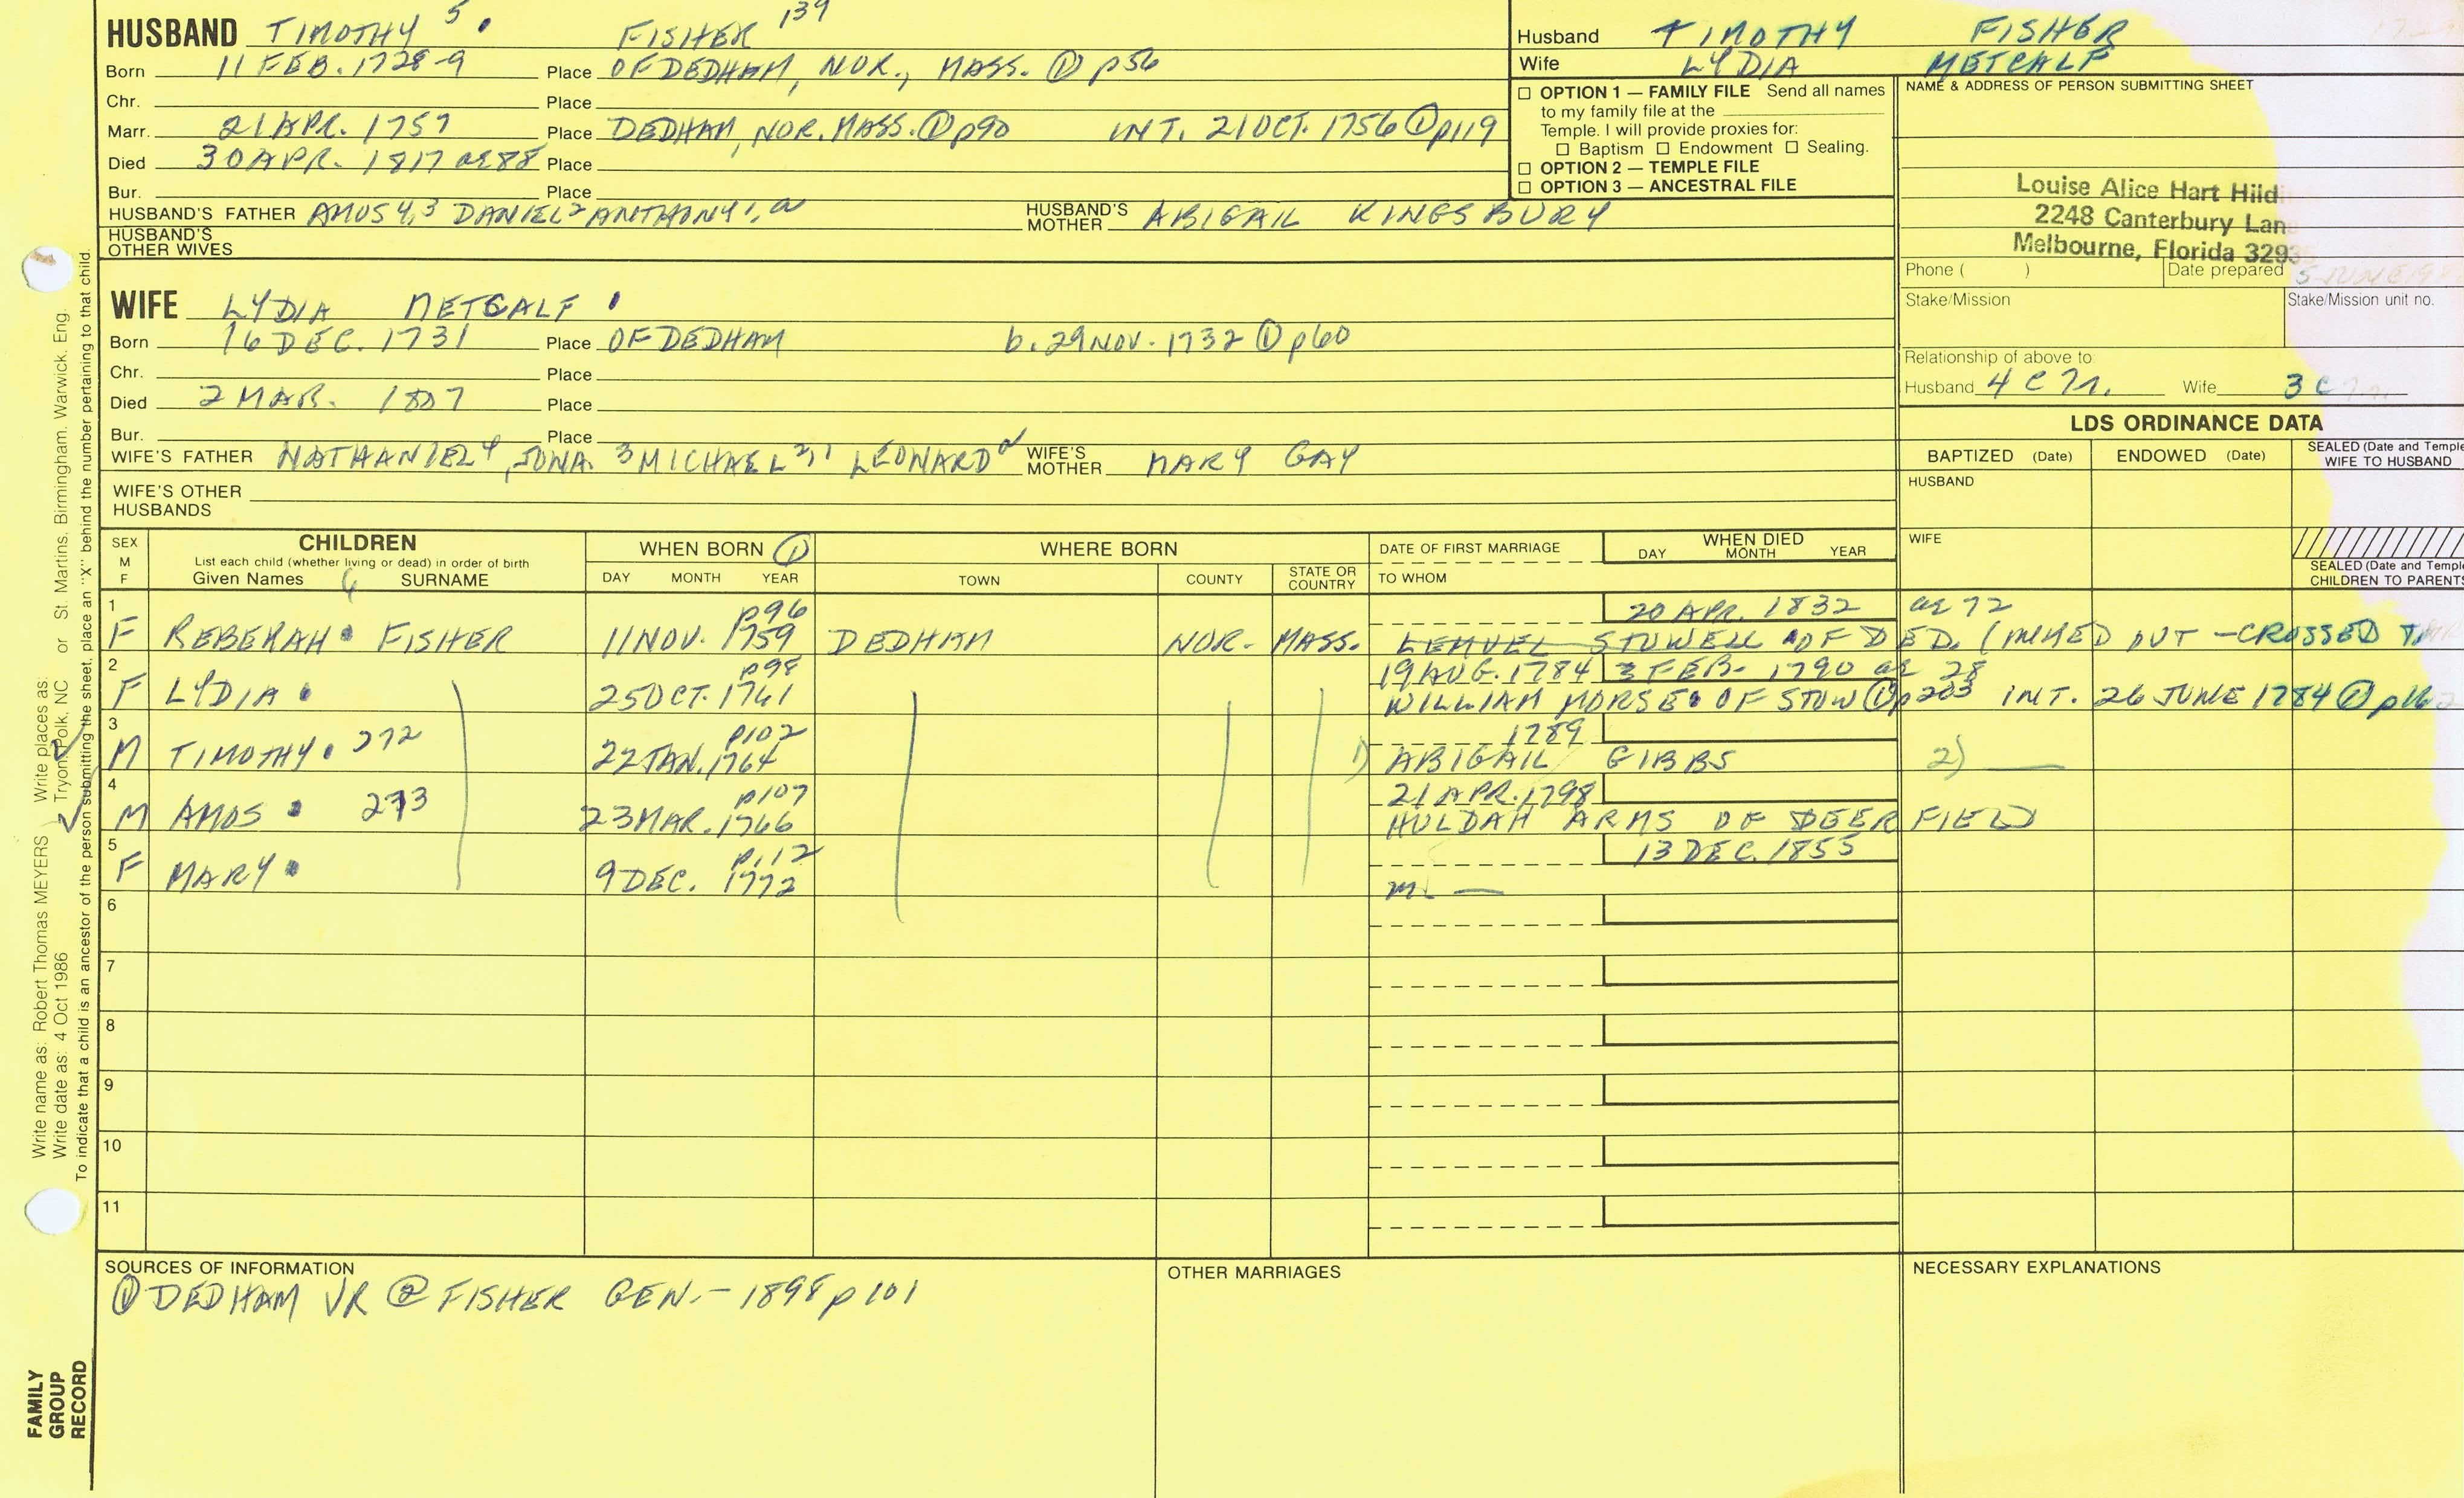 HUSBAND TIMOTHY 5 . FISHER 139
Born 11 FEB. 1728-9 Place OF DEDHAM, NOR., MASS. ① p56
Chr. Place
Marr. 21 APR. 1757 Place DEDHAM, NOR. MASS. ① p90 INT. 21 OCT. 1756 ① p119
Died 30 APR. 1817 ae 88 Place
Bur. Place
HUSBAND'S FATHER AMOS 4,3 DANIEL 2 ANTHONY 1, a HUSBAND'S MOTHER ABIGAIL KINGSBURY
HUSBAND'S OTHER WIVES
WIFE LYDIA METCALF
Born 16 DEC. 1731 Place OF DEDHAM b. 29 NOV. 1732 ① p60
Chr. Place
Died 2 MAR. 1807 Place
Bur. Place
WIFE'S FATHER NATHANIEL 4, JONA. 3 MICHAEL 2,1 LEONARD a WIFE'S MOTHER MARY GAY
WIFE'S OTHER HUSBANDS
Husband TIMOTHY FISHER
Wife LYDIA METCALF
□ OPTION 1 — FAMILY FILE Send all names
to my family file at the
Temple. I will provide proxies for:
□ Baptism □ Endowment □ Sealing.
□ OPTION 2 — TEMPLE FILE
□ OPTION 3 — ANCESTRAL FILE
NAME & ADDRESS OF PERSON SUBMITTING SHEET
Louise Alice Hart Hild
2248 Canterbury Lan
Melbourne, Florida 3293
Phone ( ) Date prepared 5 JUNE 9
Stake/Mission Stake/Mission unit no.
Relationship of above to
Husband 4 C Wife 3 C
LDS ORDINANCE DATA
BAPTIZED (Date) ENDOWED (Date) SEALED (Date and Temple
WIFE TO HUSBAND
HUSBAND
WIFE
SEALED (Date and Temple
CHILDREN TO PARENTS
SEX M F CHILDREN WHEN BORN ① WHERE BORN DATE OF FIRST MARRIAGE WHEN DIED
List each child (whether living or dead) in order of birth
Given Names 6 SURNAME DAY MONTH YEAR TOWN COUNTY STATE OR COUNTRY TO WHOM DAY MONTH YEAR
1 p96 20 APR. 1832 ae 72
F REBEKAH . FISHER 11 NOV. 1759 DEDHAM NOR. MASS. LEMUEL STOWELL OF DED. (INKED OUT - CROSSED
2 p98 19 AUG. 1784 3 FEB. 1790 ae 28
F LYDIA . 25 OCT. 1761 WILLIAM MORSE . OF STOW ① p203 INT. 26 JUNE 1784 ①
3 p102 1789
M TIMOTHY . 272 22 JAN. 1764 1) ABIGAIL GIBBS 2) —
4 p107 21 APR. 1798
M AMOS . 273 23 MAR. 1766 HULDAH ARMS OF DEERFIELD
5 p112 13 DEC. 1855
F MARY . 9 DEC. 1772 m. —
6
7
8
9
10
11
SOURCES OF INFORMATION
① DEDHAM VR ② FISHER GEN. - 1898 p 101
OTHER MARRIAGES
NECESSARY EXPLANATIONS
Write name as: Robert Thomas MEYERS Write places as: Tryon, Polk, NC or St. Martins, Birmingham, Warwick, Eng.
Write date as: 4 Oct 1986
To indicate that a child is an ancestor of the person submitting the sheet, place an "X" behind the number pertaining to that child.
FAMILY
GROUP
RECORD